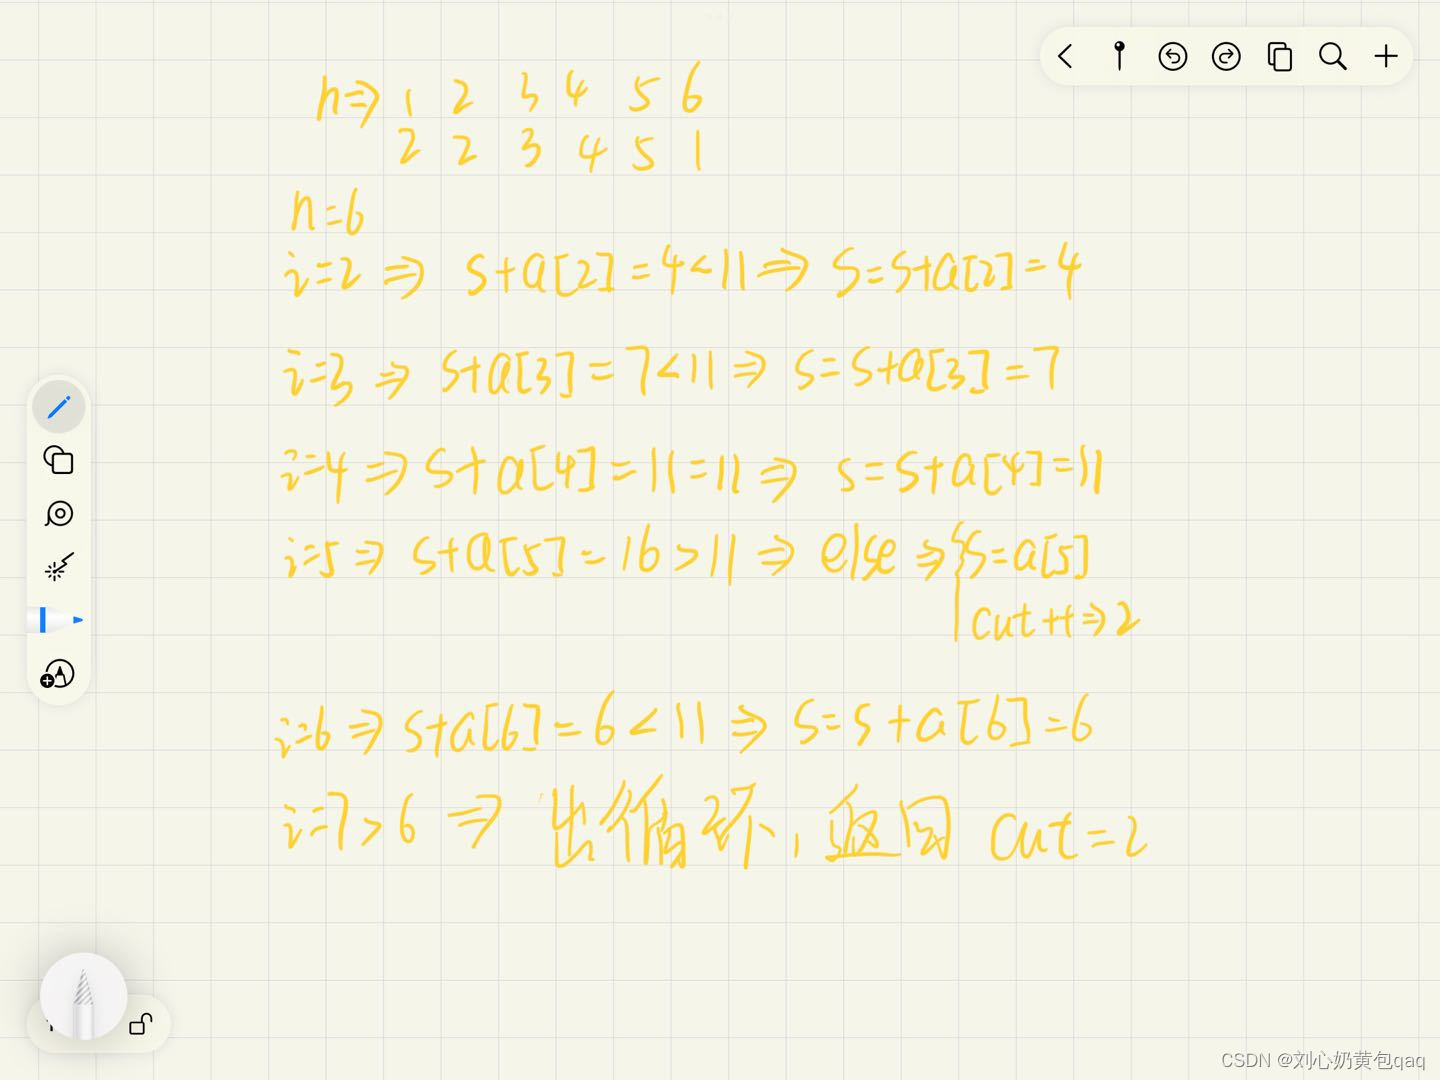 n⇒ 1 2 3 4 5 6
2 2 3 4 5 1
n=6
i=2 ⇒ s+a[2]=4<11⇒ s=s+a[2]=4
i=3 ⇒ s+a[3]=7<11⇒ s=s+a[3]=7
i=4 ⇒ s+a[4]=11=11⇒ s=s+a[4]=11
i=5 ⇒ s+a[5]=16>11⇒ else ⇒{s=a[5]
cut++⇒2
i=6 ⇒ s+a[6]=6<11⇒ s=s+a[6]=6
i=7>6 ⇒ 出循环,返回 cut=2
CSDN @刘心奶黄包qaq